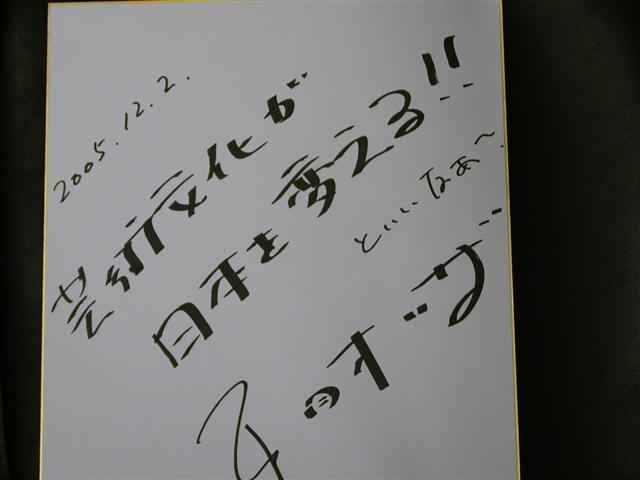 2005.12.2.
芸術文化が
日本を変える!!
といいなぁ〜
平田オリザ